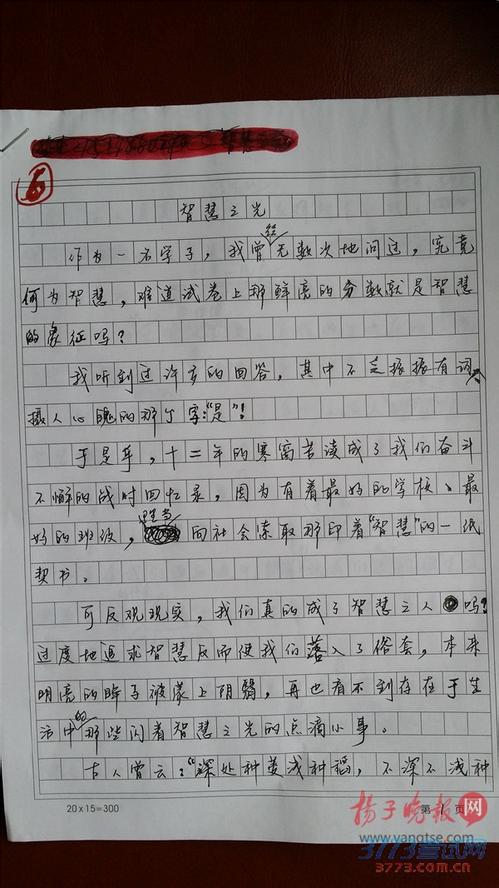 智慧之光
作为一名学子，我曾经无数次地问过，究竟
何为智慧，难道试卷上那鲜亮的分数就是智慧
的象征吗？
我听到过许多的回答，其中不乏振振有词、
摄人心魄的那个字："是"！
于是乎，十二年的寒窗苦读成了我们奋斗
不懈的战时回忆录，因为有着最好的学校、最
好的班级，向社会索取那印着"智慧"的一纸
契书。
可反观现实，我们真的成了智慧之人吗？
过度地追求智慧反而使我们落入了俗套，本来
明亮的眸子被蒙上阴翳，再也看不到存在于生
活中的那些闪着智慧之光的点滴小事。
古人曾云："深处种菱浅种稻，不深不浅种
20×15=300
第1页
扬子晚报网
www.yangtse.com
3773考试网
3773.com.cn